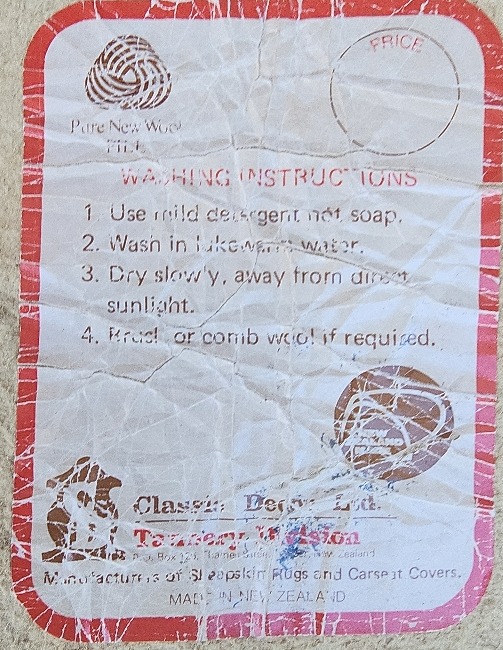 PRICE
Pure New Wool
PILE
WASHING INSTRUCTIONS
1. Use mild detergent not soap.
2. Wash in lukewarm water.
3. Dry slowly, away from direct
sunlight.
4. Brush or comb wool if required.
NEW
ZEALAND
Classic Decor Ltd.
Tannery Division
P.O. Box 124, Street, New Zealand
Manufacturers of Sheepskin Rugs and Carseat Covers.
MADE IN NEW ZEALAND